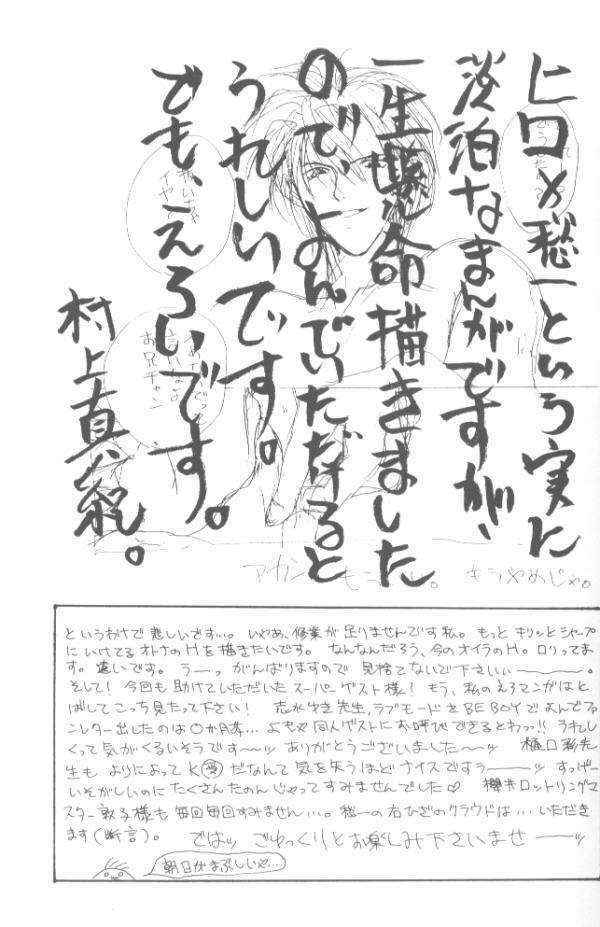 ヒロ×愁一という実に
淡泊なまんがですが、
一生懸命描きました
ので、よんでいただけると
うれしいです。
でも、えろいです。
村上真紀。
お兄チャン
もうやめじゃ。
というわけで悲しいです…。いやあ、修業が足りませんです私。もっとキリッとシャープ
にいけてるオトナのHを描きたいです。なんなんだろう、今のオイラのH。ロリってま
す。遠いです。うーっ がんばりますので見捨てないで下さいぃ———。
そして!今回も助けていただいたスーパーゲスト様!もう、私のえろマンガはと
ばしてこっち見たって下さい! 志水ゆき先生、ラブモードをBE BOYでよんでファ
ンレター出したのは〇か月前…よもや同人ゲストにお呼びできるとわっっ!!うれし
くって気がくるいそうです〜〜ッ ありがとうございました〜ッ 樋口彩先
生も よりによってK(受)だなんて気を失うほどナイスですぅ——ッ すっげー
いそがしいのに たくさんたのんじゃってすみませんでした♡ 櫻井ロットリングマ
スター敦子様も毎回毎回すみません…。愁一の右ひざのクラウドは…いただき
ます(断言)。 ではッ ごゆっくりとお楽しみ下さいませ———ッ
朝日がまぶしいぜ…